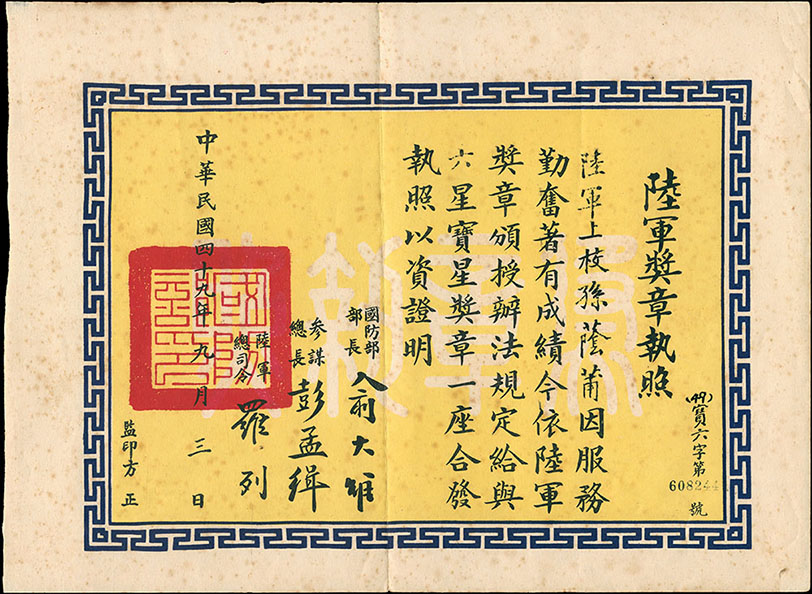 陸軍獎章執照
(49)寶六字第
608244
號
陸軍上校孫蔭莆因服務
勤奮著有成績今依陸軍
獎章頒授辦法規定給與
六星寶星獎章一座合發
執照以資證明
國防部
部長
俞大維
參謀
總長
彭孟緝
陸軍
總司令
羅列
中華民國四十九年九月三日
監印方正